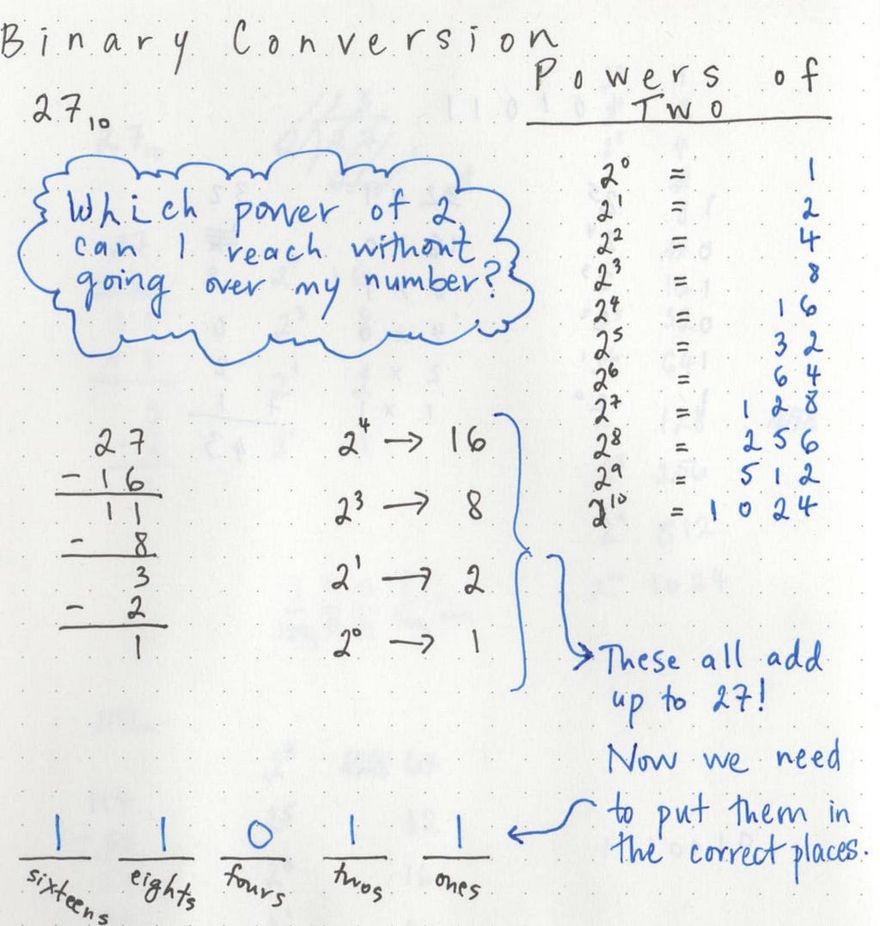 Binary Conversion
27₁₀
Which power of 2
can I reach without
going over my number?
Powers of
Two
2⁰ = 1
2¹ = 2
2² = 4
2³ = 8
2⁴ = 16
2⁵ = 32
2⁶ = 64
2⁷ = 128
2⁸ = 256
2⁹ = 512
2¹⁰ = 1024
27
- 16
11
- 8
3
- 2
1
2⁴ → 16
2³ → 8
2¹ → 2
2⁰ → 1
These all add
up to 27!
Now we need
to put them in
the correct places.
1 1 0 1 1
sixteens eights fours twos ones